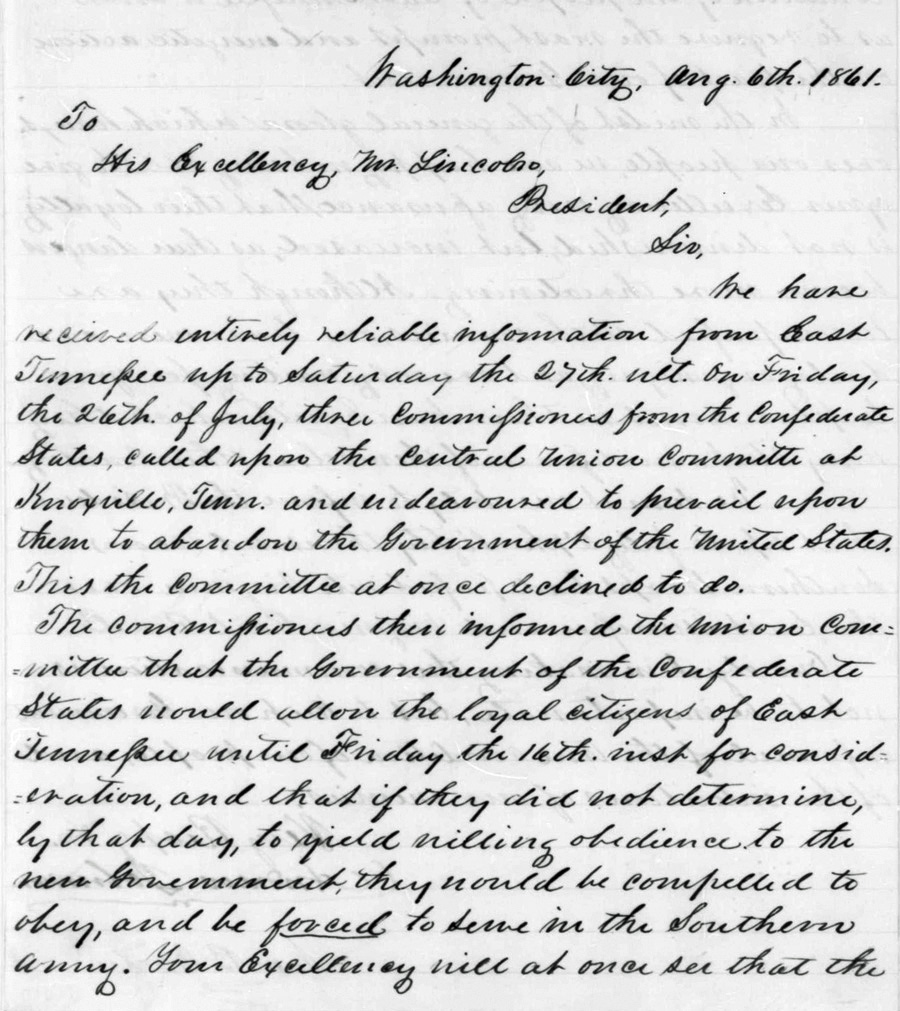 Washington City, Aug. 6th. 1861.
To
His Excellency, Mr. Lincoln,
President,
Sir,
We have
received entirely reliable information from East
Tennessee up to Saturday the 27th. ult. On Friday,
the 26th. of July, three Commissioners from the Confederate
States, called upon the Central Union Committe at
Knoxville, Tenn. and endeavoured to prevail upon
them to abandon the Government of the United States.
This the Committee at once declined to do.
The Commissioners then informed the Union Com=
=mittee that the Government of the Confederate
States would allow the loyal citizens of East
Tennessee until Friday the 16th. inst for consid=
=eration, and that if they did not determine,
by that day, to yield willing obedience to the
new Government, they would be compelled to
obey, and be forced to serve in the Southern
Army. Your Excellency will at once see that the